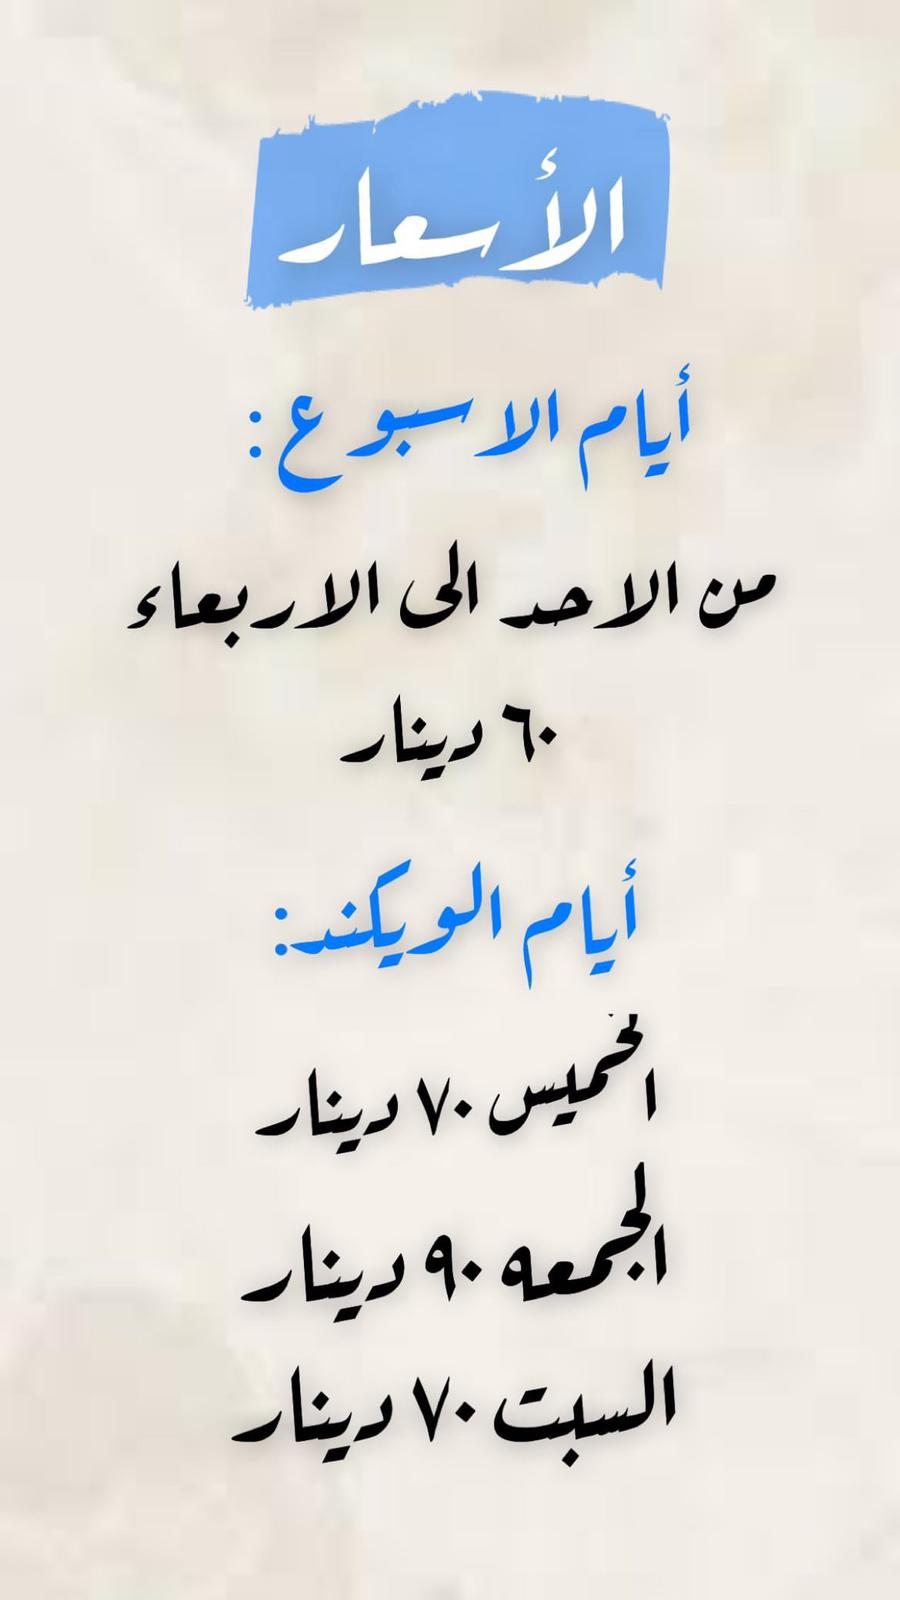 الأسعار
أيام الاسبوع :
من الاحد الى الاربعاء
٦٠ دينار
أيام الويكند:
الخميس ٧٠ دينار
الجمعه ٩٠ دينار
السبت ٧٠ دينار